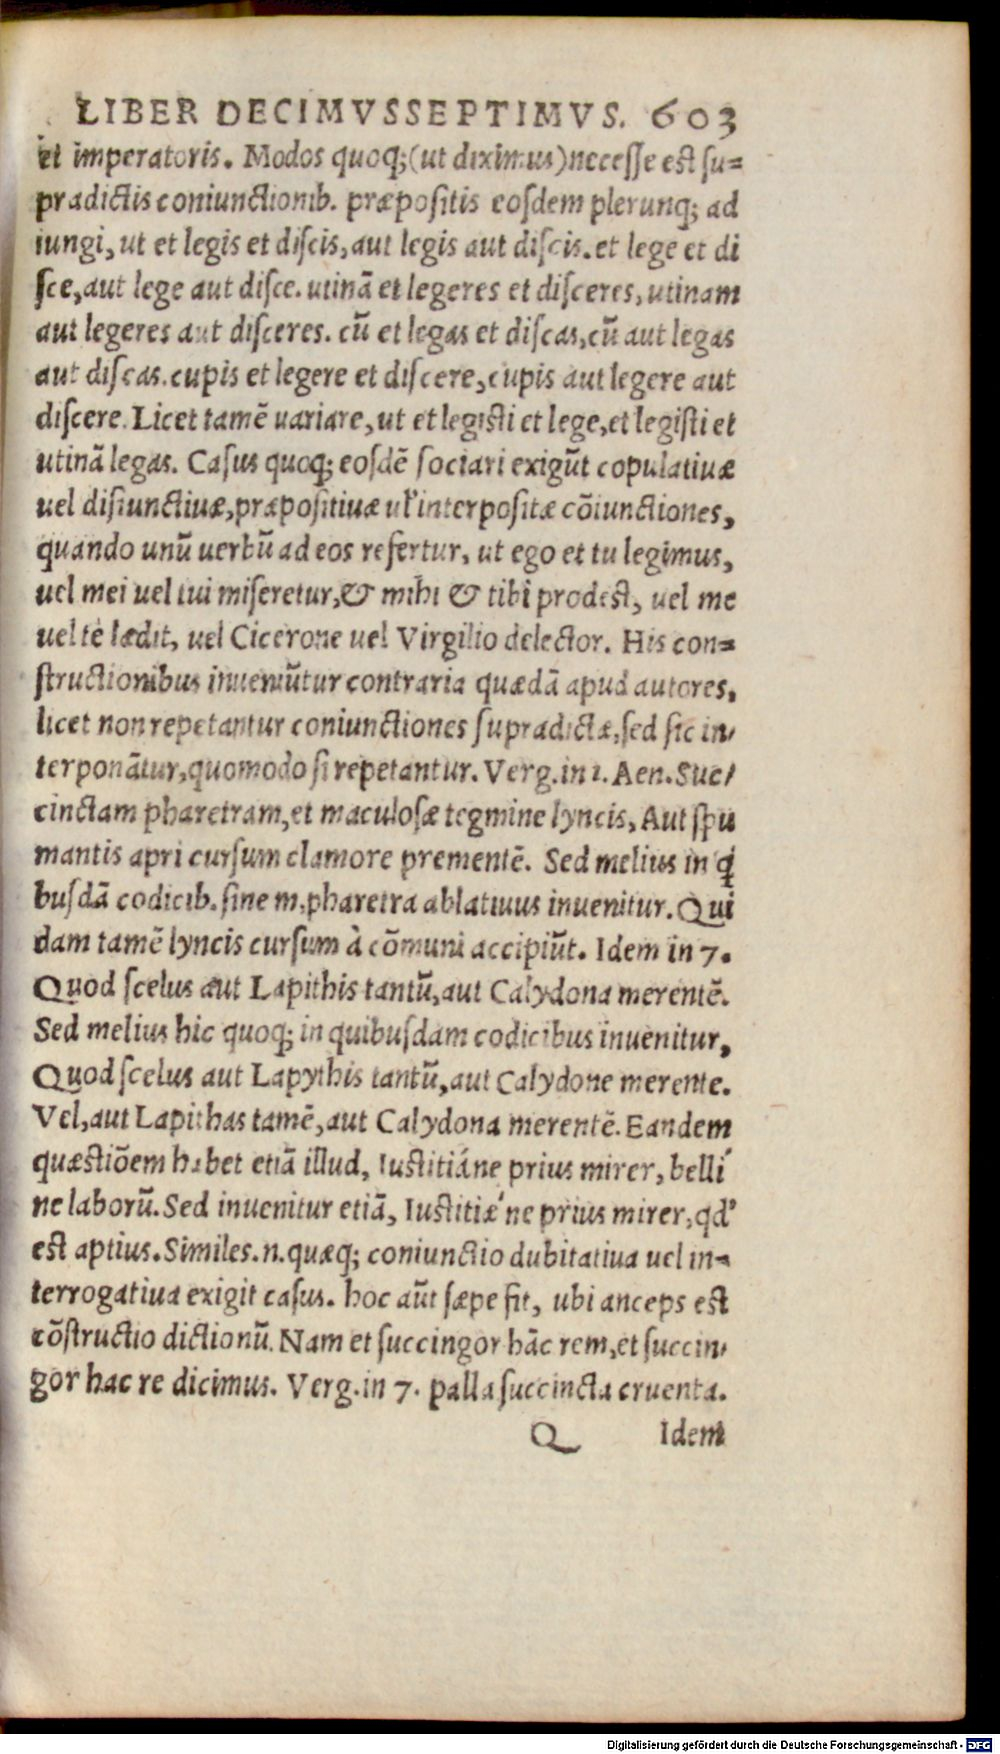 LIBER DECIMVSSEPTIMVS. 603
et imperatoris. Modos quoq;(ut diximus)necesse est su=
pradictis coniunctionib. præpositis eosdem plerunq; ad
iungi, ut et legis et discis, aut legis aut discis. et lege et di
sce, aut lege aut disce. utinā et legeres et disceres, utinam
aut legeres aut disceres. cū et legas et discas, cū aut legas
aut discas. cupis et legere et discere, cupis aut legere aut
discere. Licet tamē uariare, ut et legisti et lege, et legisti et
utinā legas. Casus quoq; eosdē sociari exigūt copulatiuæ
uel disiunctiuæ, præpositiuæ ul' interpositæ cōiunctiones,
quando unū uerbū ad eos refertur, ut ego et tu legimus,
uel mei uel tui miseretur, & mihi & tibi prodest, uel me
uel te lædit, uel Cicerone uel Virgilio delector. His con=
structionibus inueniūtur contraria quædā apud autores,
licet non repetantur coniunctiones supradictæ, sed sic in/
terponātur, quomodo si repetantur. Verg. in 1. Aen. Suc/
cinctam pharetram, et maculosæ tegmine lyncis, Aut spu
mantis apri cursum clamore prementē. Sed melius in q̇
busdā codicib. sine m, pharetra ablatiuus inuenitur. Qui
dam tamē lyncis cursum à cōmuni accipiūt. Idem in 7.
Quod scelus aut Lapithis tantū, aut Calydona merentē.
Sed melius hic quoq; in quibusdam codicibus inuenitur,
Quod scelus aut Lapythis tantū, aut Calydone merente.
Vel, aut Lapithas tamē, aut Calydona merentē. Eandem
quæstiōem habet etiā illud, Iustitiáne prius mirer, belli´
ne laborū. Sed inuenitur etiā, Iustitiæ´ne prius mirer, qd'
est aptius. Similes .n. quæq; coniunctio dubitatiua uel in=
terrogatiua exigit casus. hoc aūt sæpe fit, ubi anceps est
cōstructio dictionū. Nam et succingor hāc rem, et succin/
gor hac re dicimus. Verg. in 7. palla succincta cruenta.
Q Idem
Digitalisierung gefördert durch die Deutsche Forschungsgemeinschaft - DFG